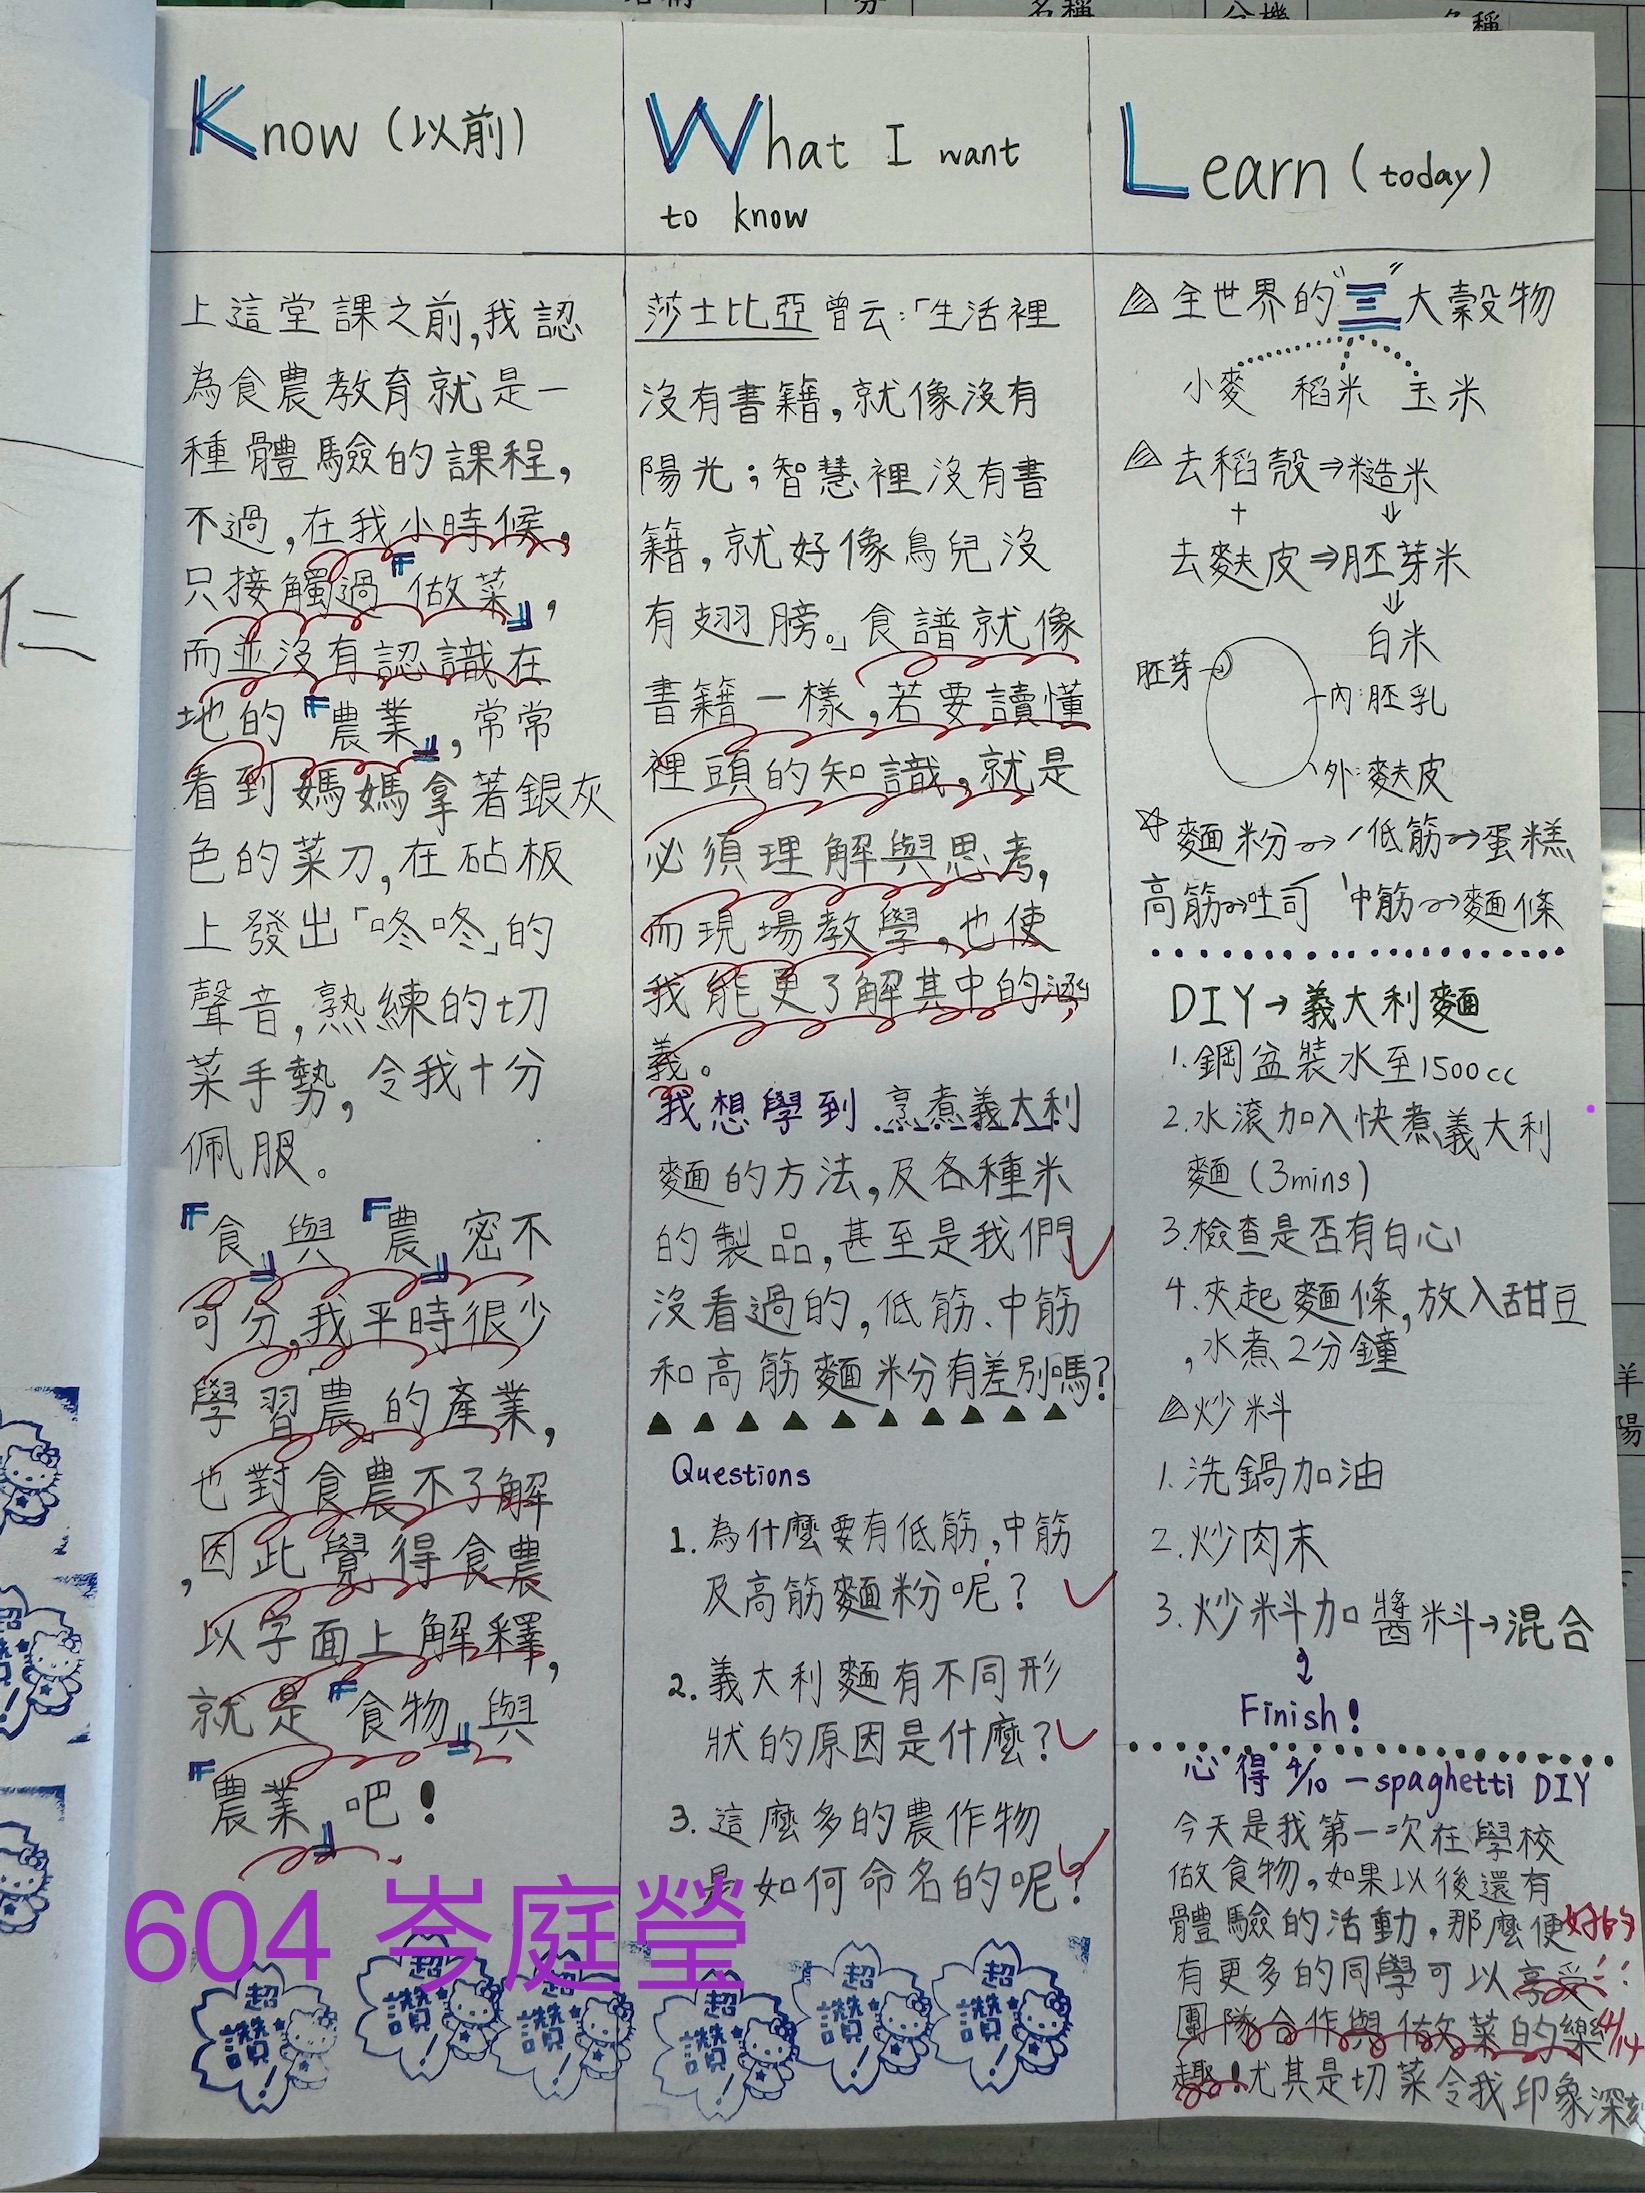 Know (以前)
上這堂課之前,我認
為食農教育就是一
種體驗的課程,
不過,在我小時候,
只接觸過『做菜』,
而並沒有認識在
地的『農業』,常常
看到媽媽拿著銀灰
色的菜刀,在砧板
上發出「咚咚」的
聲音,熟練的切
菜手勢,令我十分
佩服。
『食』與『農』密不
可分,我平時很少
學習農的產業,
也對食農不了解
,因此覺得食農
以字面上解釋,
就是『食物』與
『農業』吧!
What I want
to know
莎士比亞曾云:「生活裡
沒有書籍,就像沒有
陽光;智慧裡沒有書
籍,就好像鳥兒沒
有翅膀。」食譜就像
書籍一樣,若要讀懂
裡頭的知識,就是
必須理解與思考,
而現場教學,也使
我能更了解其中的涵
義。
我想學到烹煮義大利
麵的方法,及各種米
的製品,甚至是我們
沒看過的,低筋、中筋
和高筋麵粉有差別嗎?
Questions
1. 為什麼要有低筋,中筋
及高筋麵粉呢?
2. 義大利麵有不同形
狀的原因是什麼?
3. 這麼多的農作物
是如何命名的呢?
Learn (today)
全世界的"三"大穀物
小麥 稻米 玉米
去稻殼⇒糙米
+
去麩皮⇒胚芽米
白米
胚芽
內:胚乳
外:麩皮
麵粉→低筋→蛋糕
高筋→吐司 中筋→麵條
DIY→義大利麵
1.鋼盆裝水至1500cc
2.水滾加入快煮義大利
麵(3mins)
3.檢查是否有白心
4.夾起麵條,放入甜豆
,水煮2分鐘
炒料
1.洗鍋加油
2.炒肉末
3.炒料加醬料→混合
Finish!
心得 4/10 - spaghetti DIY
今天是我第一次在學校
做食物。如果以後還有
體驗的活動,那麼便
有更多的同學可以享受
團隊合作與做菜的樂
趣!尤其是切菜令我印象深刻
好的
4/14
604 岑庭瑩
超讚!
超讚!
超讚!
超讚!
超讚!
超讚!